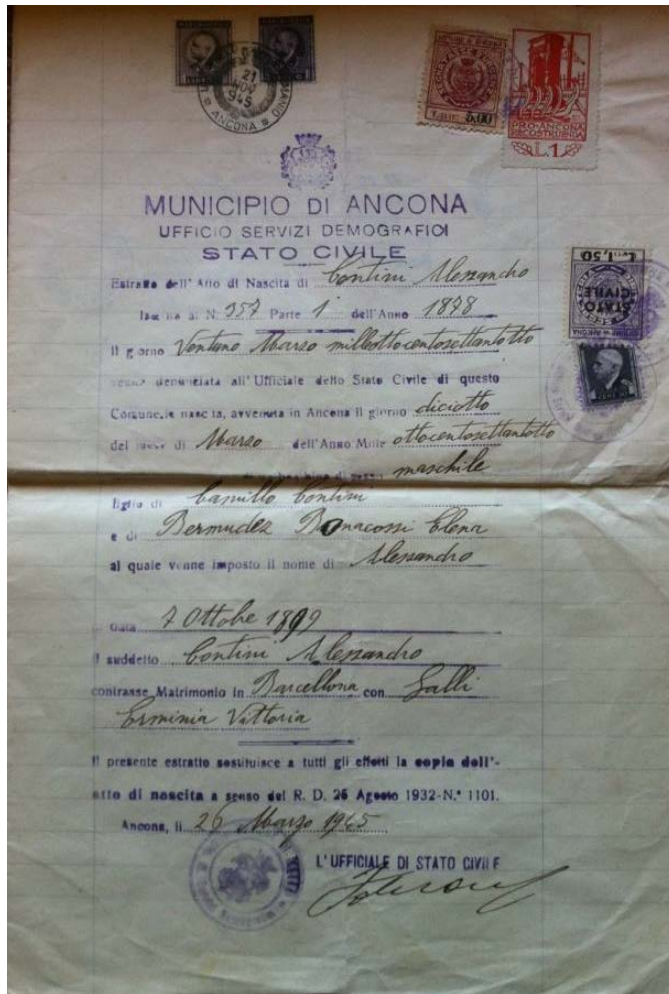 21
NOV
945
ANCONA
5,00
PRO-ANCONA
RICOSTRUENDA
L.1
MUNICIPIO DI ANCONA
UFFICIO SERVIZI DEMOGRAFICI
STATO CIVILE
Estratto dell'Atto di Nascita di Contini Alessandro
al N. 357 Parte 1 dell'Anno 1878
L. 1,50
STATO
CIVILE
Il giorno Ventuno Marzo milleottocentosettantotto
venne denunciata all'Ufficiale dello Stato Civile di questo
Comune, la nascita, avvenuta in Ancona il giorno diciotto
del mese di Marzo dell'Anno Mille ottocentosettantotto
maschile
figlio di Camillo Contini
e di Bermudez Bonacossi Elena
al quale venne imposto il nome di Alessandro
data 7 Ottobre 1899
Il suddetto Contini Alessandro
contrasse Matrimonio in Barcellona con Galli
Erminia Vittoria
Il presente estratto sostituisce a tutti gli effetti la copia dell'-
atto di nascita a senso del R. D. 25 Agosto 1932-N.° 1101.
Ancona, li 26 Marzo 1945
L'UFFICIALE DI STATO CIVILE